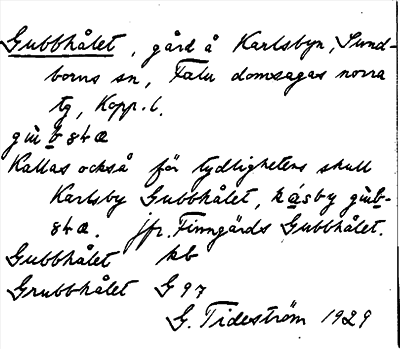 Gubbhålet, gård å Karlsbyn, Sund-
borns sn, Falu domsagas norra
tg, Kopp. l.
Kallas också för tydlighetens skull
Karlsby Gubbhålet,
jfr. Finngårds Gubbhålet.
Gubbhålet kb
Grubbhålet G 97
G. Tideström 1929